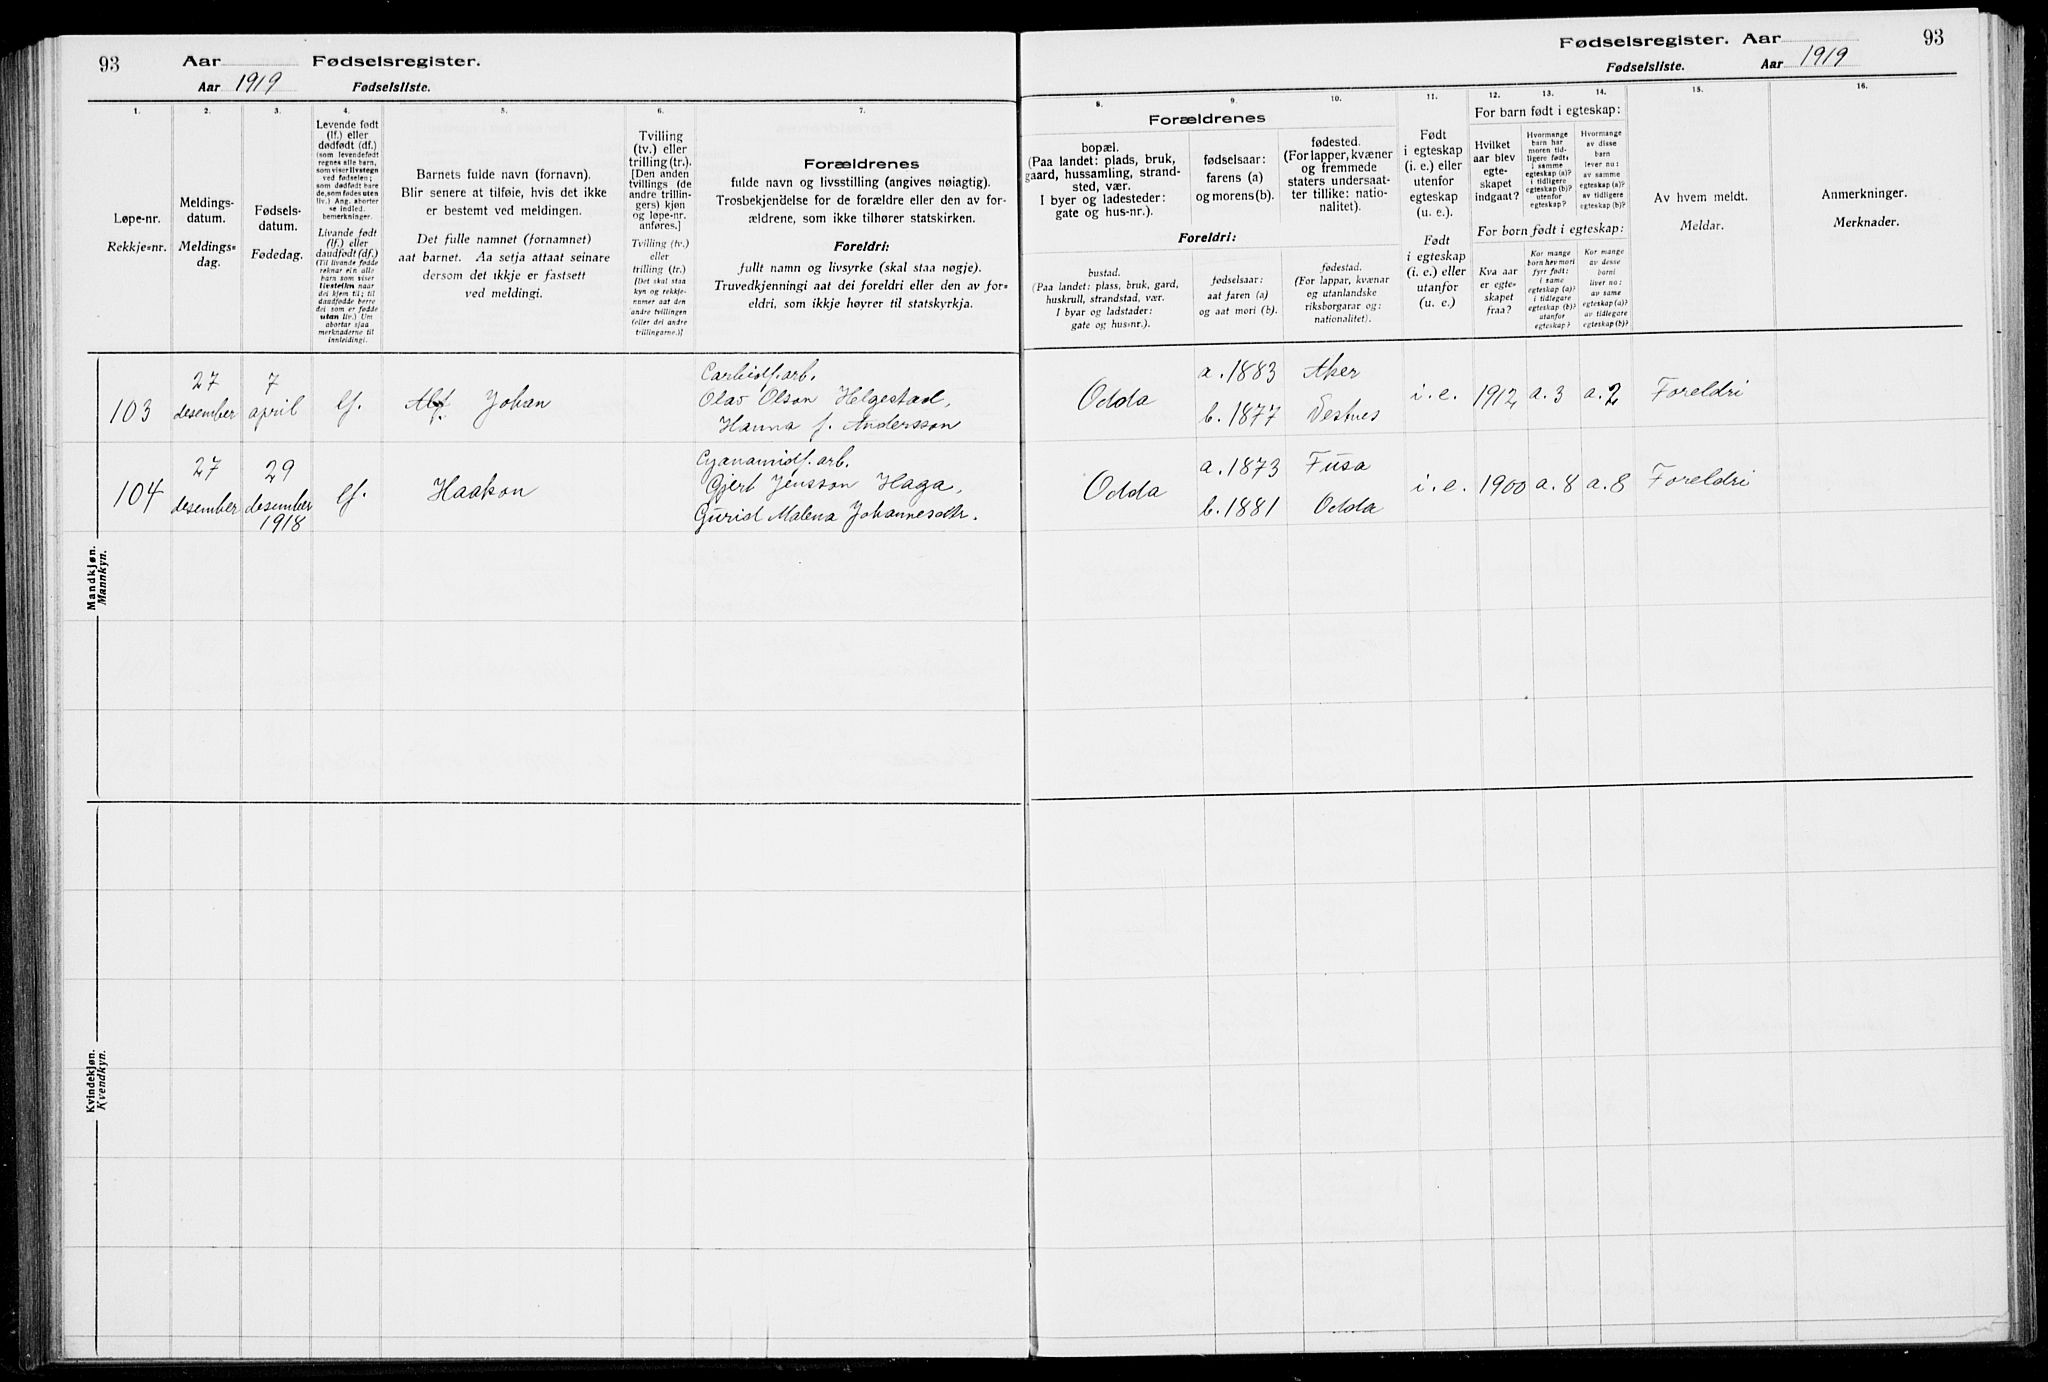 93
Aar
Fødselsregister.
Aar 1919
Fødselsliste.
1.
2.
3.
4.
5.
6.
7.
Løpe-nr.
Rekkje-nr.
Meldings-
datum.
Meldings-
dag.
Fødsels-
datum.
Fødedag.
Levende født
(lf.) eller
dødfødt (df.)
(som levendefødt
regnes alle barn,
som viser livstegn
ved fødselen;
som dødfødt bare
de, som fødes uten
liv.) Ang. aborter
se indled.
bemerkninger.
Livande født
(lf.) eller
daudfødt (df.)
(Til livande fødde
reknar ein alle
barn som viser
livsteikn naar
dei kjem til; til
daudfødde berre
dei som er fødde
utan liv.) Um
abortar sjaa
merknaderne til
innleidingi.
Barnets fulde navn (fornavn).
Blir senere at tilføie, hvis det ikke
er bestemt ved meldingen.
Det fulle namnet (fornamnet)
aat barnet. Aa setja attaat seinare
dersom det ikkje er fastsett
ved meldingi.
Tvilling
(tv.) eller
trilling (tr.).
[Den anden
tvillings (de
andre trillin-
gers) kjøn
og løpe-nr.
anføres.]
Tvilling (tv.)
eller
trilling (tr.)
[Det skal staa
kyn og rekkje-
numer aat den
andre tvillingen
(eller dei andre
trillingarne.)]
Forældrenes
fulde navn og livsstilling (angives nøiagtig).
Trosbekjendelse for de forældre eller den av for-
ældrene, som ikke tilhører statskirken.
Foreldri:
fullt namn og livsyrke (skal staa nøgje).
Truvedkjenningi aat dei foreldri eller den av for-
eldri, som ikkje høyrer til statskyrkja.
103
27
desember
7
april
lf.
Alf Johan
Carbidf.arb.
Olav Olson Helgestad,
Hanna f. Andersson
104
27
desember
29
desember
1918
lf.
Haakon
Cyanamidf.arb.
Gjert Jensson Haga,
Gurid Malena Johannesdtr.
Mandkjøn.
Mannkyn.
Kvindekjøn.
Kvendkyn.
Fødselsregister. Aar
93
Fødselsliste.
Aar 1919
8.
9.
10.
11.
12.
13.
14.
15.
16.
Forældrenes
bopæl.
(Paa landet: plads, bruk,
gaard, hussamling, strand-
sted, vær.
I byer og ladesteder:
gate og hus-nr.).
fødselsaar:
farens (a)
og morens (b).
fødested.
(For lapper, kvæner
og fremmede
staters undersaat-
ter tillike: natio-
nalitet).
Foreldri:
bustad.
(Paa landet: plass, bruk, gard,
huskrull, strandstad, vær.
I byar og ladstader:
gate og hus-nr.).
fødselsaar:
aat faren (a)
og aat mori (b).
fødestad.
(For lappar, kvænar
og utanlandske
riksborgarar og:
nationalitet).
Født
i egteskap
(i. e.) eller
utenfor
egteskap
(u. e.).
Født
i egteskap
(i. e.) eller
utanfor
(u. e.)
For barn født i egteskap:
Hvilket
aar blev
egte-
skapet
indgaat?
Hvormange
barn har
moren tid-
ligere født:
i samme
egteskap (a)?
i tidligere
egteskap (b)?
utenfor
egteskap?
Hvormange
av disse
barn
lever nu:
av samme
egteskap (a)?
av tidligere
egteskap (b)?
For born født i egteskap:
Kva aar
er egte-
skapet
fraa?
Kor mange
born hev mori
fyrr født:
i same
egteskap (a)?
i tidlegare
egteskap (b)?
utanfor
egteskap?
Kor mange
av desse
borni
liver no:
av same
egteskap (a)?
av tidlegare
egteskap (b)?
Av hvem meldt.
Meldar.
Anmerkninger.
Merknader.
Odda
a. 1883
b. 1877
Aker
Vestnes
i. e.
1912
a. 3
a. 2
Foreldri
Odda
a. 1873
b. 1881
Fusa
Odda
i. e.
1900
a. 8
a. 8
Foreldri